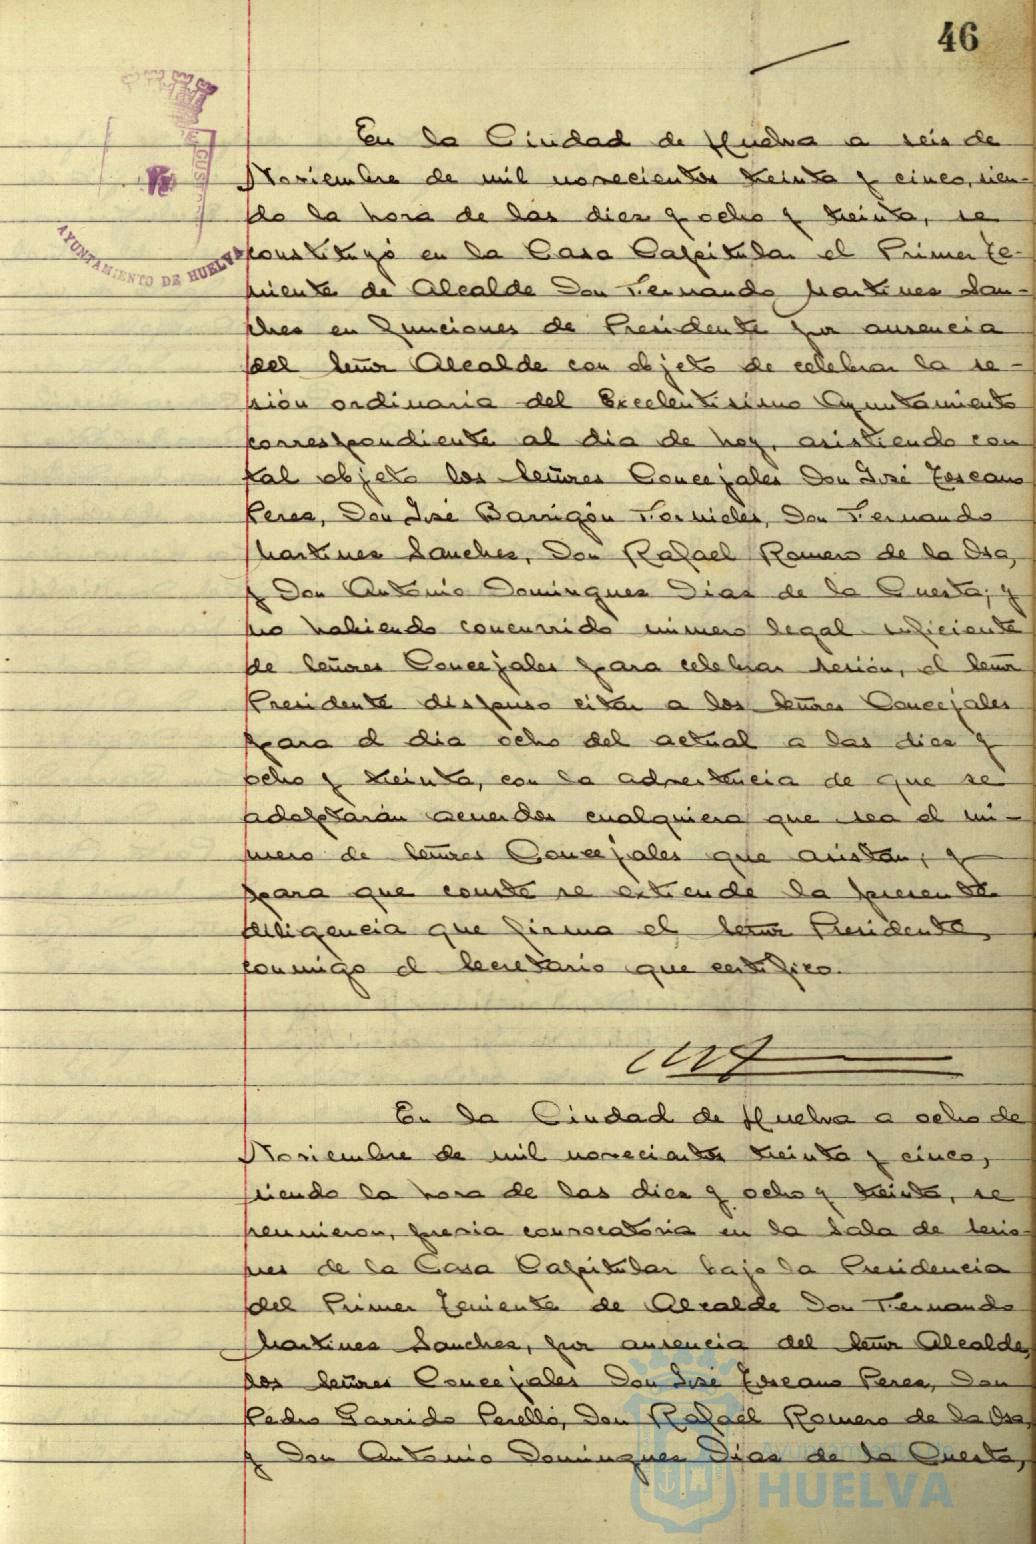 46
En la Ciudad de Huelva a seis de
Noviembre de mil novecientos treinta y cinco, sien-
do la hora de las diez y ocho y treinta, se
constituyó en la Casa Capitular el Primer Te-
niente de Alcalde Don Fernando Martinez San-
chez en funciones de Presidente por ausencia
del Señor Alcalde con objeto de celebrar la se-
sión ordinaria del Excelentisimo Ayuntamiento
correspondiente al dia de hoy, asistiendo con
tal objeto los Señores Concejales Don José Toscano
Perez, Don José Barrigón Fornieles, Don Fernando
Martinez Sanchez, Don Rafael Romero de la Osa,
y Don Antonio Dominguez Diaz de la Cuesta; y
no habiendo concurrido número legal suficiente
de Señores Concejales para celebrar sesión, el Señor
Presidente dispuso citar a los Señores Concejales
para el dia ocho del actual a las diez y
ocho y treinta, con la advertencia de que se
adoptarán acuerdos cualquiera que sea el nú-
mero de Señores Concejales que asistan, y
para que conste se extiende la presente
diligencia que firma el Señor Presidente,
conmigo el Secretario que certifico.
En la Ciudad de Huelva a ocho de
Noviembre de mil novecientos treinta y cinco,
siendo la hora de las diez y ocho y treinta, se
reunieron, previa convocatoria en la Sala de Sesio-
nes de la Casa Capitular bajo la Presidencia
del Primer Teniente de Alcalde Don Fernando
Martinez Sanchez, por ausencia del Señor Alcalde,
los Señores Concejales Don José Toscano Perez, Don
Pedro Garrido Perelló, Don Rafael Romero de la Osa,
y Don Antonio Dominguez Diaz de la Cuesta,
AYUNTAMIENTO DE HUELVA
Ayuntamiento de
HUELVA